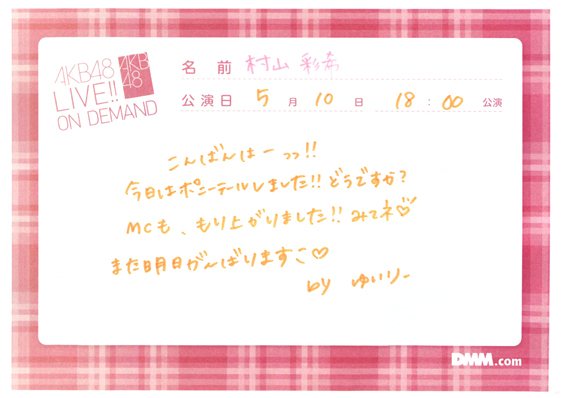 AKB48
LIVE!!
ON DEMAND
AKB
48
名 前 村山 彩希
公演日 5 月 10 日 18:00 公演
こんばんはーっっ!!
今日はポニーテールしました!!どうですか?
MCも、もり上がりました!!みてネ♡
また明日がんばりますこ♡
by ゆいりー
DMM.com